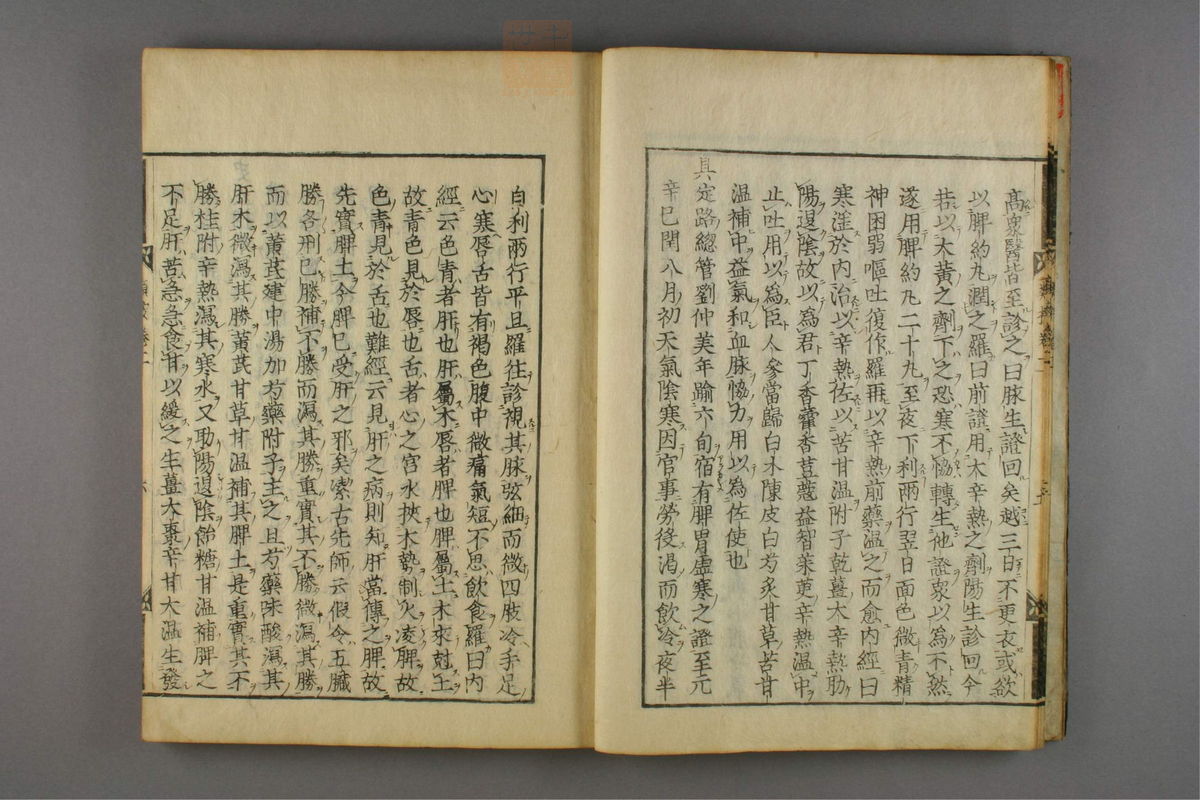 高衆醫皆至診之曰脉生證回矣越三日不更衣或欲
以脾約丸潤之羅曰前證用大辛熱之劑陽生診回今
若以大黃之劑下之恐寒不恊轉生他證衆以為不然
遂用脾約丸二十丸至夜下利兩行翌日面色微青精
神困弱嘔吐復作羅再以辛熱前藥温之而愈内經曰
寒淫於内治以辛熱佐以苦甘温附子乾薑大辛熱助
陽退陰故以為君丁香藿香荳蔲益智茱萸辛熱温中
止吐用以為臣人參當歸白木陳皮白芍炙甘草苦甘
温補中益氣和血脉恊力用以為佐使也
真定路緫管劉仲美年踰六旬宿有脾胃虚寒之證至元
辛巳閏八月初天氣陰寒因官事勞役渴而飲冷夜半
自利兩行平旦羅往診視其脉弦細而微四肢冷手足
心寒唇舌皆有褐色腹中微痛氣短不思飲食羅曰内
經云色青者肝也肝屬木唇者脾也脾屬土木來尅土
故青色見於唇也舌者心之官水挾木勢制火凌脾故
色青見於舌也難經云見肝之病則知肝當傳之脾故
先實脾土今脾已受肝之邪矣潔古先師云假令五臓
勝各刑已勝補不勝而瀉其勝重實其不勝微瀉其勝
而以黃茋建中湯加芍藥附子主之且芍藥味酸瀉其
肝木微瀉其勝黃茋甘草甘温補其脾土是重實其不
勝桂附辛熱瀉其寒水又助陽退陰飴糖甘温補脾之
不足肝苦急急食甘以緩之生薑大棗辛甘大温生發